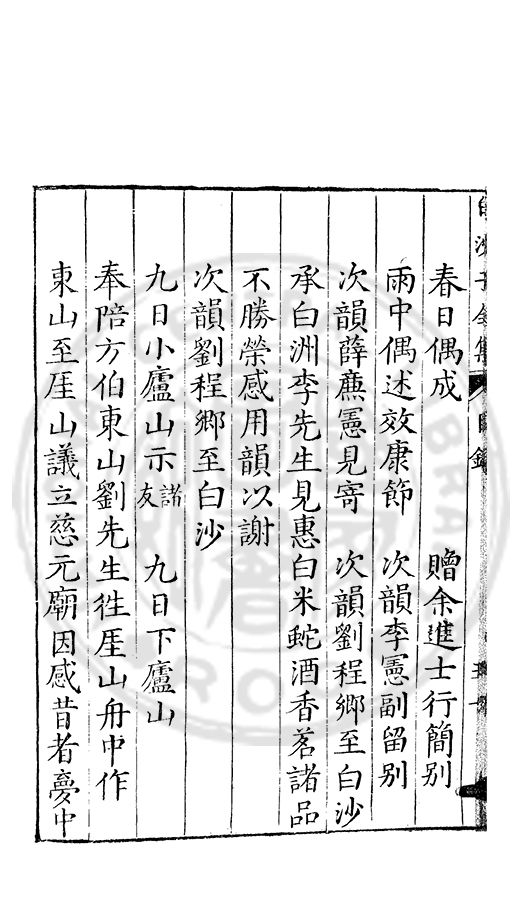 白沙子全集 目錄
春日偶成 贈余進士行簡别
雨中偶述效康節 次韻李憲副留别
次韻薛㢘憲見寄 次韻劉程鄉至白沙
承白洲李先生見惠白米蛇酒香茗諸品
不勝榮感用韻以謝
次韻劉程鄉至白沙
九日小廬山示諸友 九日下廬山
奉陪方伯東山劉先生徃厓山舟中作
東山至厓山議立慈元廟因感昔者夢中